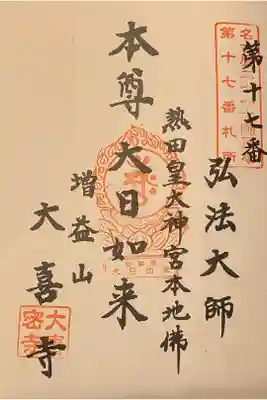 第十七番
第十七番札所
弘法大師
熱田皇大神宮本地佛
本尊 大日如来
増益山
大喜寺